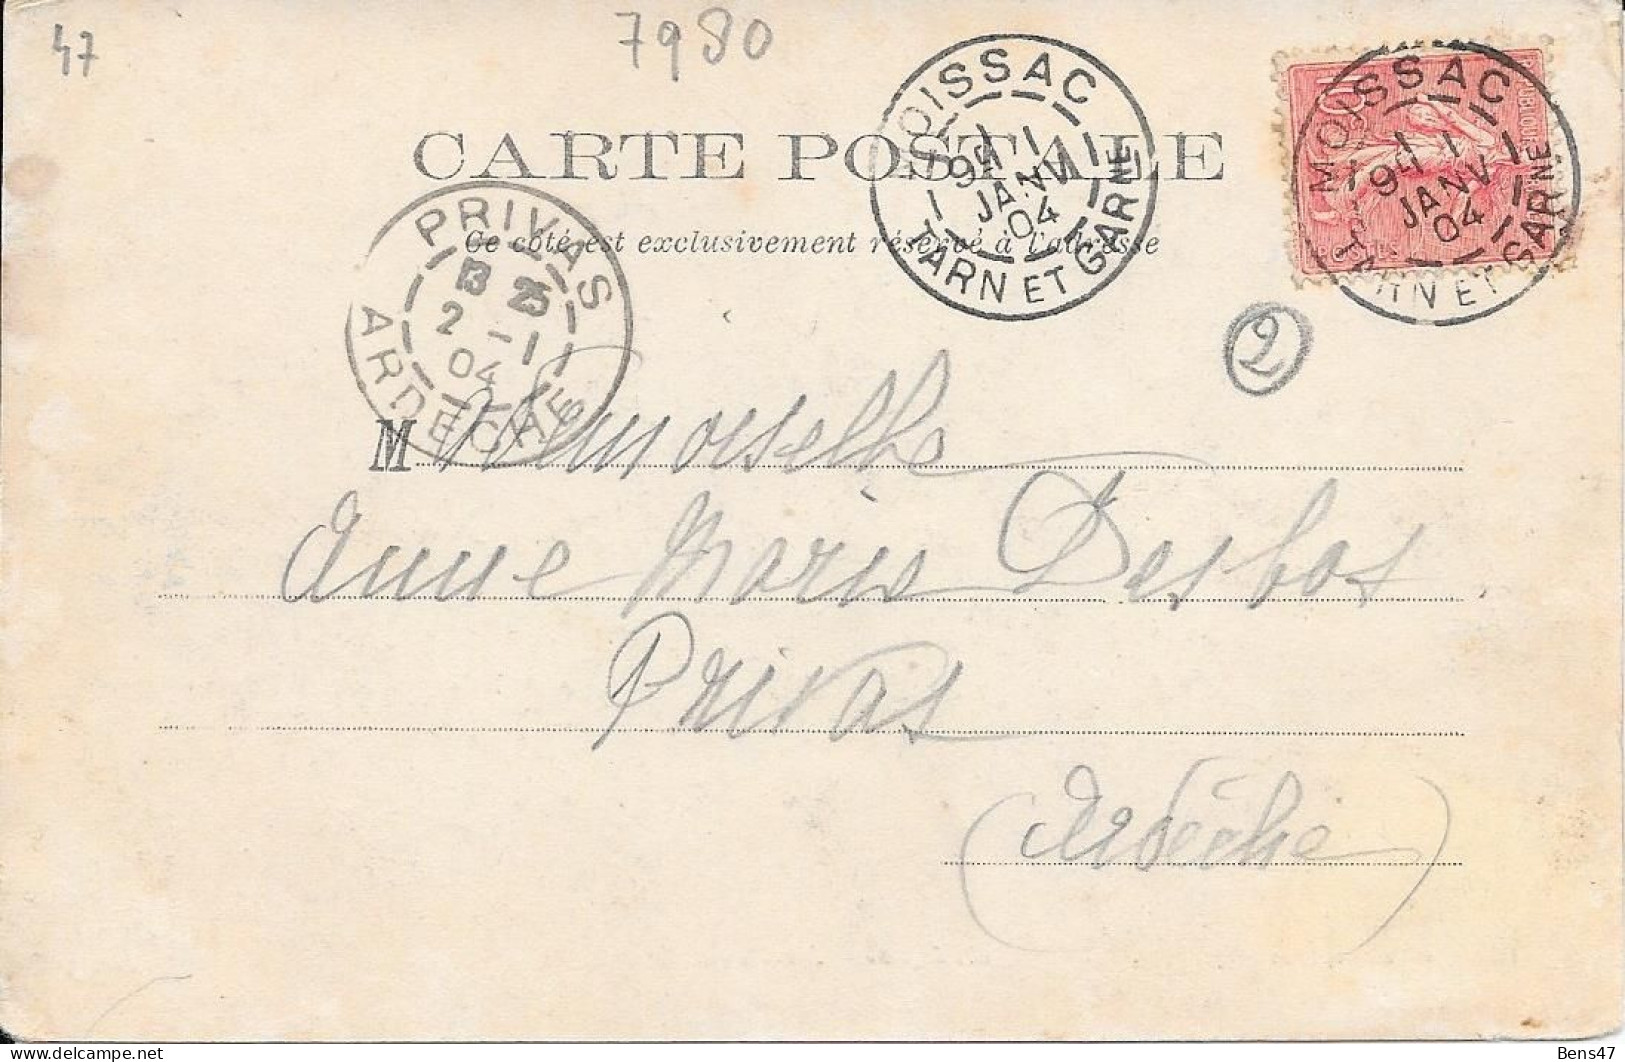 47
7980
CARTE POSTALE
Ce côté est exclusivement réservé à l'adresse
MOISSAC
9H
JANV
04
TARN ET GARNE
MOISSAC
9H
JANV
04
TARN ET GARNE
PRIVAS
13 25
2 - 1
04
ARDECHE
2
Mademoiselle
Anne Marie Desbos
Privas
(Ardèche)
Bens47